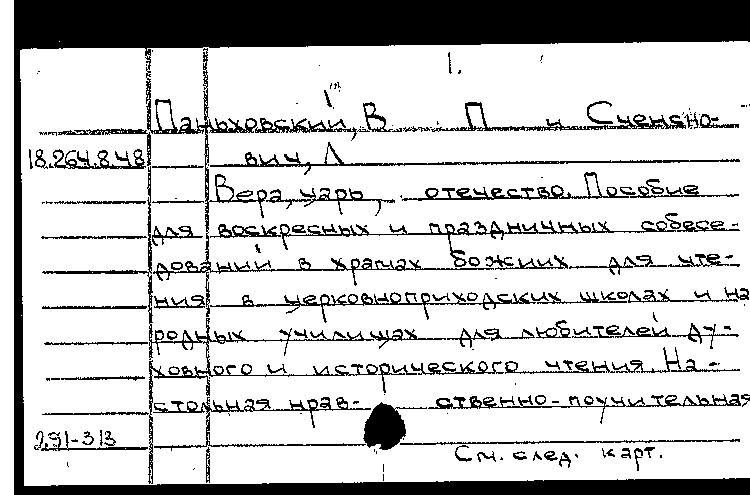 1.
Паньховский, В П и Сченсно-
18.264.848 вич, Л
Вера, царь, отечество. Пособие
для воскресных и праздничных собесе-
дований в храмах божиих для чте-
ния в церковноприходских школах и на
родных училищах для любителей ду-
ховного и исторического чтения. На-
стольная нрав- ственно-поучительная
291-313
См. след. карт.